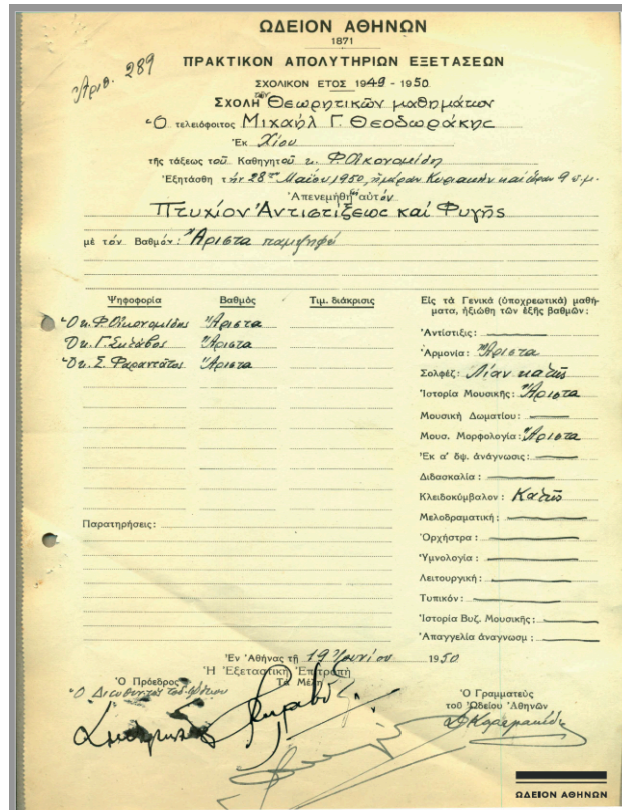 Ἀριθ. 289
ΩΔΕΙΟΝ ΑΘΗΝΩΝ
1871
ΠΡΑΚΤΙΚΟΝ ΑΠΟΛΥΤΗΡΙΩΝ ΕΞΕΤΑΣΕΩΝ
ΣΧΟΛΙΚΟΝ ΕΤΟΣ 1949 - 1950
ΣΧΟΛΗ τῶν Θεωρητικῶν μαθημάτων
Ὁ τελειόφοιτος Μιχαήλ Γ. Θεοδωράκης
Ἐκ Χίου
τῆς τάξεως τοῦ Καθηγητοῦ κ. Φ. Οἰκονομίδη
Ἐξητάσθη τήν 28ην Μαΐου 1950, ἡμέραν Κυριακήν καί ὥραν 9 π.μ.
Ἀπενεμήθη εἰς αὐτόν
Πτυχίον Ἀντιστίξεως καί Φυγῆς
μὲ τόν Βαθμόν: Ἄριστα παμψηφεί
Ψηφοφορία Βαθμός Τιμ. διάκρισις
Ὁ κ. Φ. Οἰκονομίδης Ἄριστα
Ὁ κ. Γ. Σκλάβος Ἄριστα
Ὁ κ. Σ. Φαραντάτος Ἄριστα
Παρατηρήσεις:
Εἰς τά Γενικά (ὑποχρεωτικά) μαθή-
ματα, ἠξιώθη τῶν ἑξῆς βαθμῶν:
Ἀντίστιξις:
Ἁρμονία: Ἄριστα
Σολφέζ: Λίαν καλῶς
Ἱστορία Μουσικῆς: Ἄριστα
Μουσική Δωματίου:
Μουσ. Μορφολογία: Ἄριστα
Ἐκ α' ὄψ. ἀνάγνωσις:
Διδασκαλία:
Κλειδοκύμβαλον: Καλῶς
Μελοδραματική:
Ὀρχήστρα:
Ὑμνολογία:
Λειτουργική:
Τυπικόν:
Ἱστορία Βυζ. Μουσικῆς:
Ἀπαγγελία ἀναγνωσμ:
Ἐν Ἀθήναις τῇ 19 Ἰουνίου 1950
Ἡ Ἐξεταστική Ἐπιτροπή
Ὁ Πρόεδρος Τά Μέλη
Ὁ Διευθυντής τοῦ Ὠδείου
Ὁ Γραμματεύς
τοῦ Ὠδείου Ἀθηνῶν
ΩΔΕΙΟΝ ΑΘΗΝΩΝ